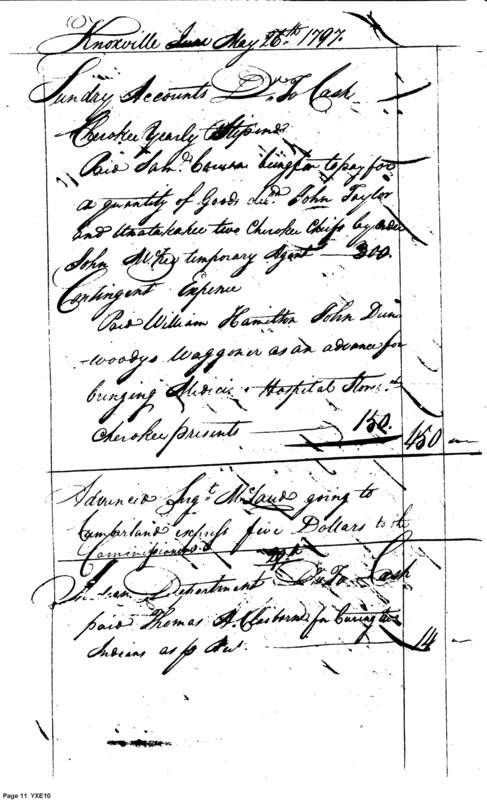 Knoxville May 26th 1797.
Sunday Accounts Dr. To Cash
Cherokee Yearly Stipend
Paid Saml. being for to pay for
a quantity of Goods deld. John Taylor
and two Cherokee Chiefs by order
John McKee temporary Agent 300.
Contingent Expence
Paid William Hamilton John Dun-
-woodys Waggoner as an advance for
bringing Medicin Hospital Stores
Cherokee presents 150. 450
Advanced Sergt. going to
Cumberland express five Dollars to the
Commissioners
Indian Department Dr. To Cash
paid Thomas A Claiborne for Curing two
Indians as pr 14
Page 11 YXE10